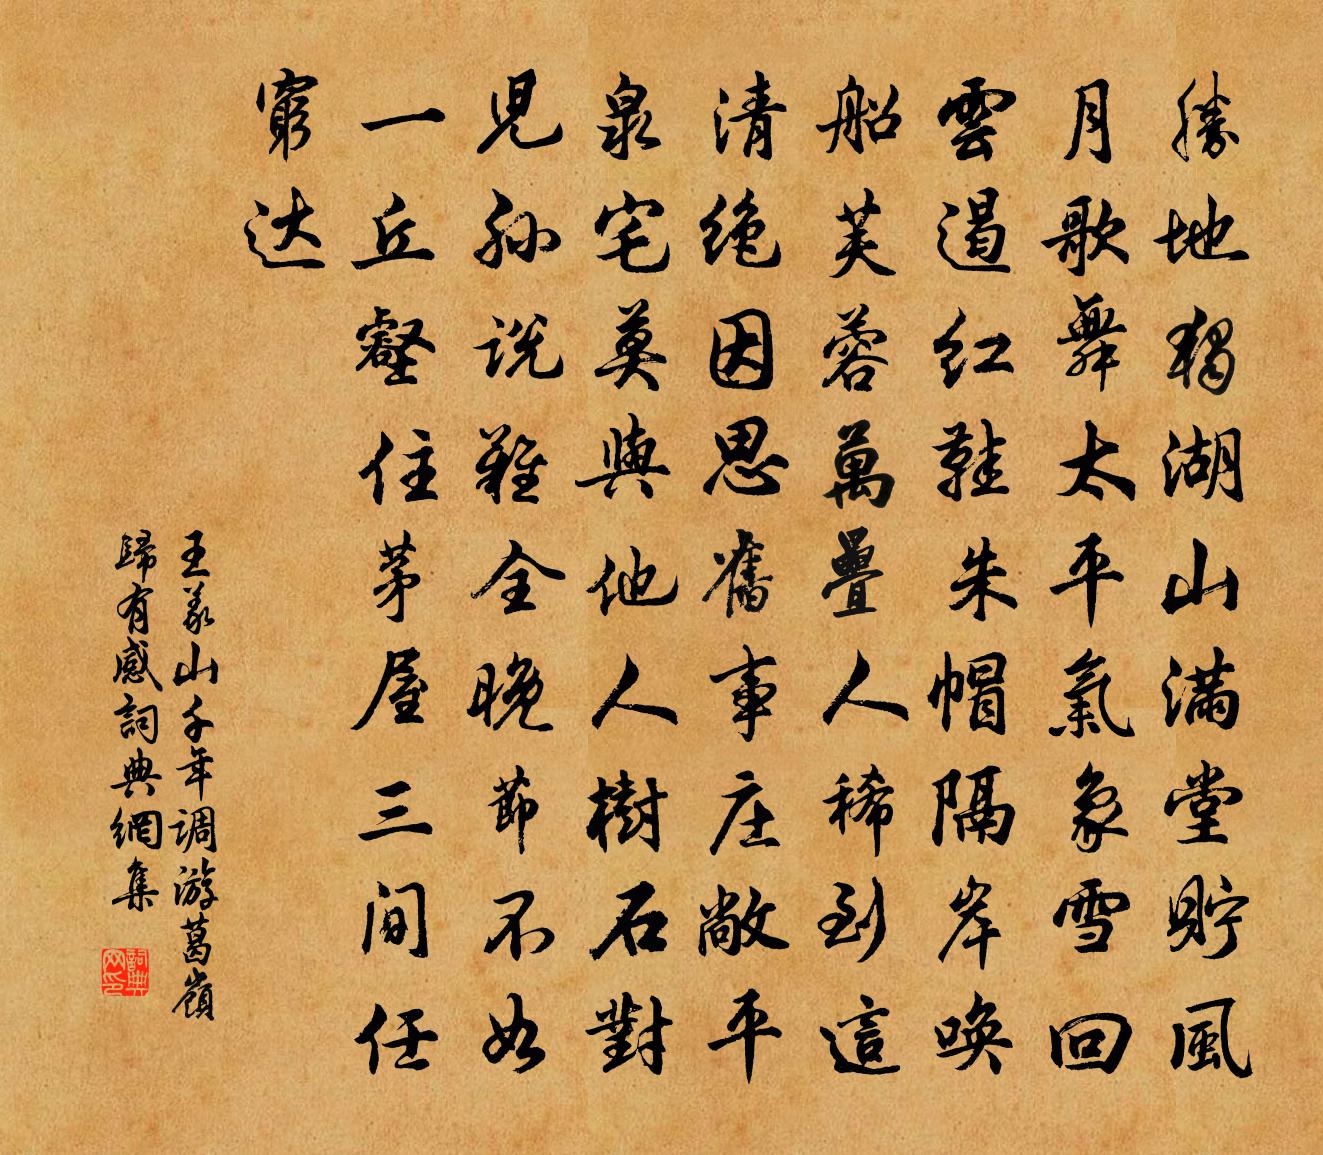 勝地獨湖山滿堂貯風
月歌舞太平氣象雪回
雲遏紅鞋朱帽隔岸喚
船芙蓉萬疊人稀到這
清绝因思舊事庄敞平
泉宅莫與他人樹石對
児孙説難全晚節不如
一丘壑住茅屋三间任
窮达
王义山千年调游葛嶺
歸有感詞典網集
詞典
网印